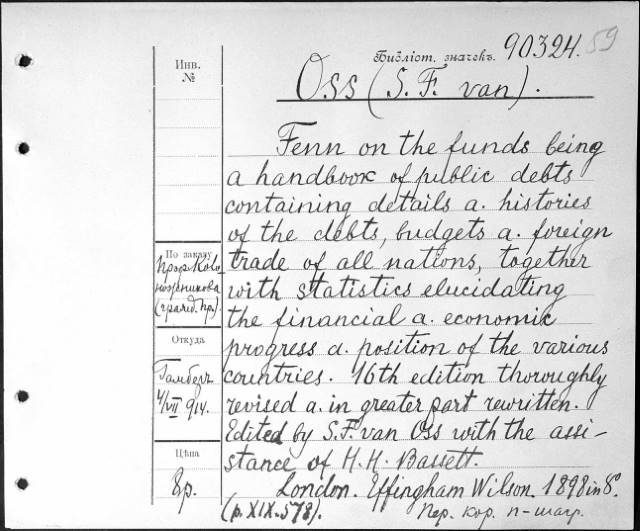 Библіот. значекъ. 90324. 59
Инв.
№
Oss (S. F. van).
Fenn on the funds being
a handbook of public debts
containing details a. histories
of the debts, budgets a. foreign
trade of all nations, together
with statistics elucidating
the financial a. economic
progress a. position of the various
countries. 16th edition thoroughly
revised a. in greater part rewritten.
Edited by S. F. van Oss with the assi-
stance of H. H. Bassett.
London. Effingham Wilson. 1898 in 8º.
(p. XIX. 578). Пер. кор. п-шагр.
По заказу
проф.
(гражд. пр.)
Откуда
Гамберг
4/VII 914.
Цѣна
8р.